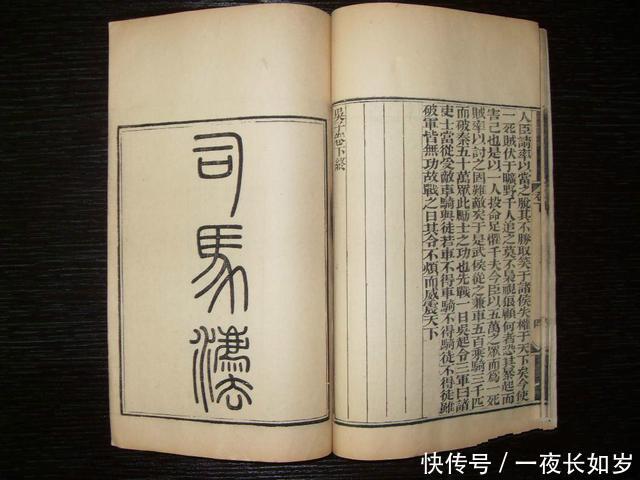 人臣請率以當之脫其不勝取笑于諸侯失權于天下矣今使
一死賊伏于曠野千人追之莫不梟視狼顧何者恐其暴起而
害己也是以一人投命足懼千夫今臣以五萬之眾而為一死
賊率以討之固難敵矣于是武侯從之兼車五百乘騎三千匹
而破秦五十萬眾此勵士之功也先戰一日吳起令三軍曰諸
吏士當從受敵車騎與徒若車不得車騎不得騎徒不得徒雖
破軍皆無功故戰之日其令不煩而威震天下
吳子卷下終
司馬灋
快传号/一夜长如岁